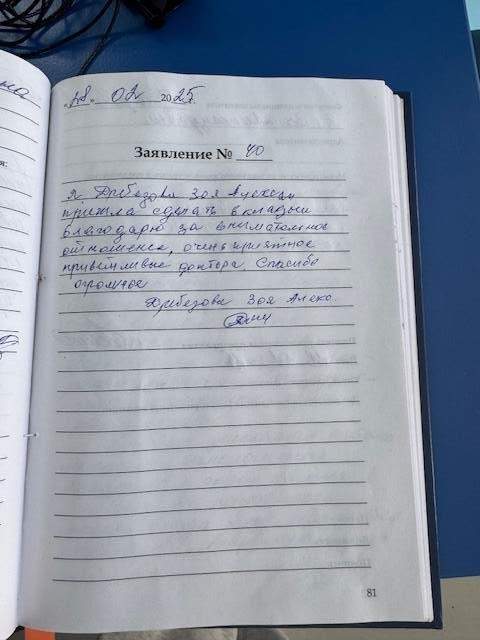 "28" 02 2025г.
Заявление № 40
Я Дребезова Зоя Алексан
пришла сделать вкладыш
Благодарю за внимательное
отношение, очень приятное
приветливые доктора Спасибо
огромное
Дребезова Зоя Алекс.
81